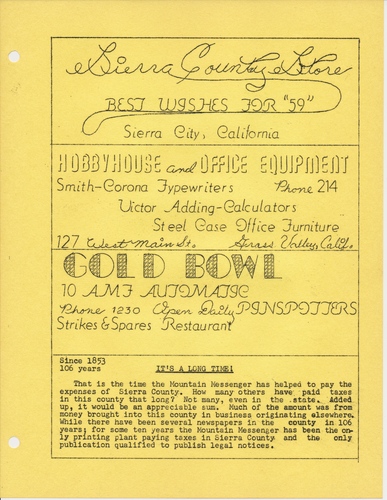 Sierra County Store
BEST WISHES FOR "59"
Sierra City, California
HOBBYHOUSE and OFFICE EQUIPMENT
Smith-Corona Typewriters Phone 214
Victor Adding-Calculators
Steel Case Office Furniture
127 West Main St. Grass Valley, Calif.
GOLD BOWL
10 AMF AUTOMATIC
Phone 1230 Open Daily PINSPOTTERS
Strikes & Spares Restaurant
Since 1853
106 years IT'S A LONG TIME!
That is the time the Mountain Messenger has helped to pay the
expenses of Sierra County. How many others have paid taxes
in this county that long? Not many, even in the state. Added
up, it would be an appreciable sum. Much of the amount was from
money brought into this county in business originating elsewhere.
While there have been several newspapers in the county in 106
years; for some ten years the Mountain Messenger has been the on-
ly printing plant paying taxes in Sierra County and the only
publication qualified to publish legal notices.